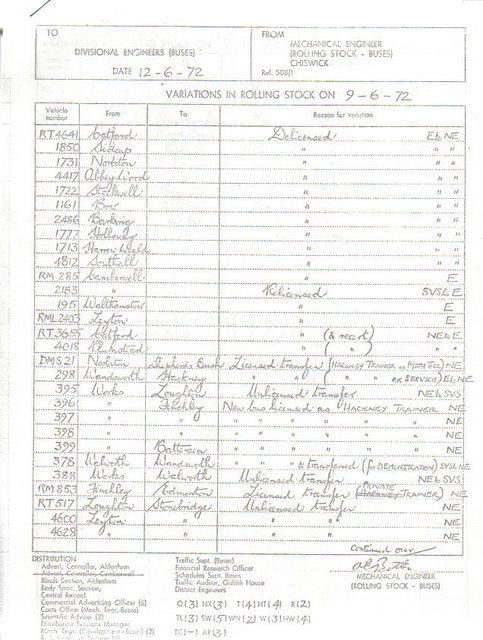 TO
FROM
DIVISIONAL ENGINEERS (BUSES)
MECHANICAL ENGINEER
(ROLLING STOCK - BUSES)
CHISWICK
DATE 12-6-72
Ref. 508/1
VARIATIONS IN ROLLING STOCK ON 9-6-72
Vehicle number From To Reason for variation
RT4641 Catford Delicensed E&NE
1850 Sidcup " " "
1731 Norbiton " " "
4417 Abbey Wood " " "
1722 Stockwell " " "
1161 Bow " " "
2486 Barking " " "
1777 Holloway " " "
1713 Hanwell " " "
4812 Southall " " "
RM 285 Camberwell " E
2183 " Relicensed SVSLE
195 Walthamstow " E
RML2403 Leyton " E
RT3655 Catford " (& recert) NE&E
4018 Plumstead " ( " ) " "
DMS21 Norbiton Shepherds Bush Licensed transfer NE
298 Wandsworth Hackney " " ( " " ex SERVICE) EL NE
395 Works Loughton Unlicensed transfer NE& SVS
396 Finchley New bus licensed as HACKNEY TRAINER NE
397 " " " " " " " NE
398 " " " " " " " NE
399 " Battersea " " " " " " NE
378 Walworth Wandsworth " " & transferred (for DEMONSTRATION) SVSL NE
388 Works Walworth Unlicensed transfer NE& SVS
RM853 Finchley Edmonton Licensed transfer (PRIVATE TRAINER) NE
RT517 Loughton Stonebridge Unlicensed transfer NE
4600 Leyton " " " NE
4628 " " " " NE
Continued over
MECHANICAL ENGINEER
(ROLLING STOCK - BUSES)
DISTRIBUTION
Advert. Controller, Aldenham
Advert. Controller, Camberwell
Blinds Section, Aldenham
Body Spec. Section,
Central Record
Commercial Advertising Officer (6)
Costs Office (Mech. Engr.-Buses)
Scientific Adviser (2)
Distribution Services Manager
Mech. Engr. (Development - Buses) (2)
Traffic Supt. (Buses)
Financial Research Officer
Schedules Supt. Buses
Traffic Auditor, Griffith House
District Engineers
Q(3) NX(3) T(4) HT(4) R(2)
TL(3) SW(5) WN(2) W(3) HW(4)
TC(-) AR(3)